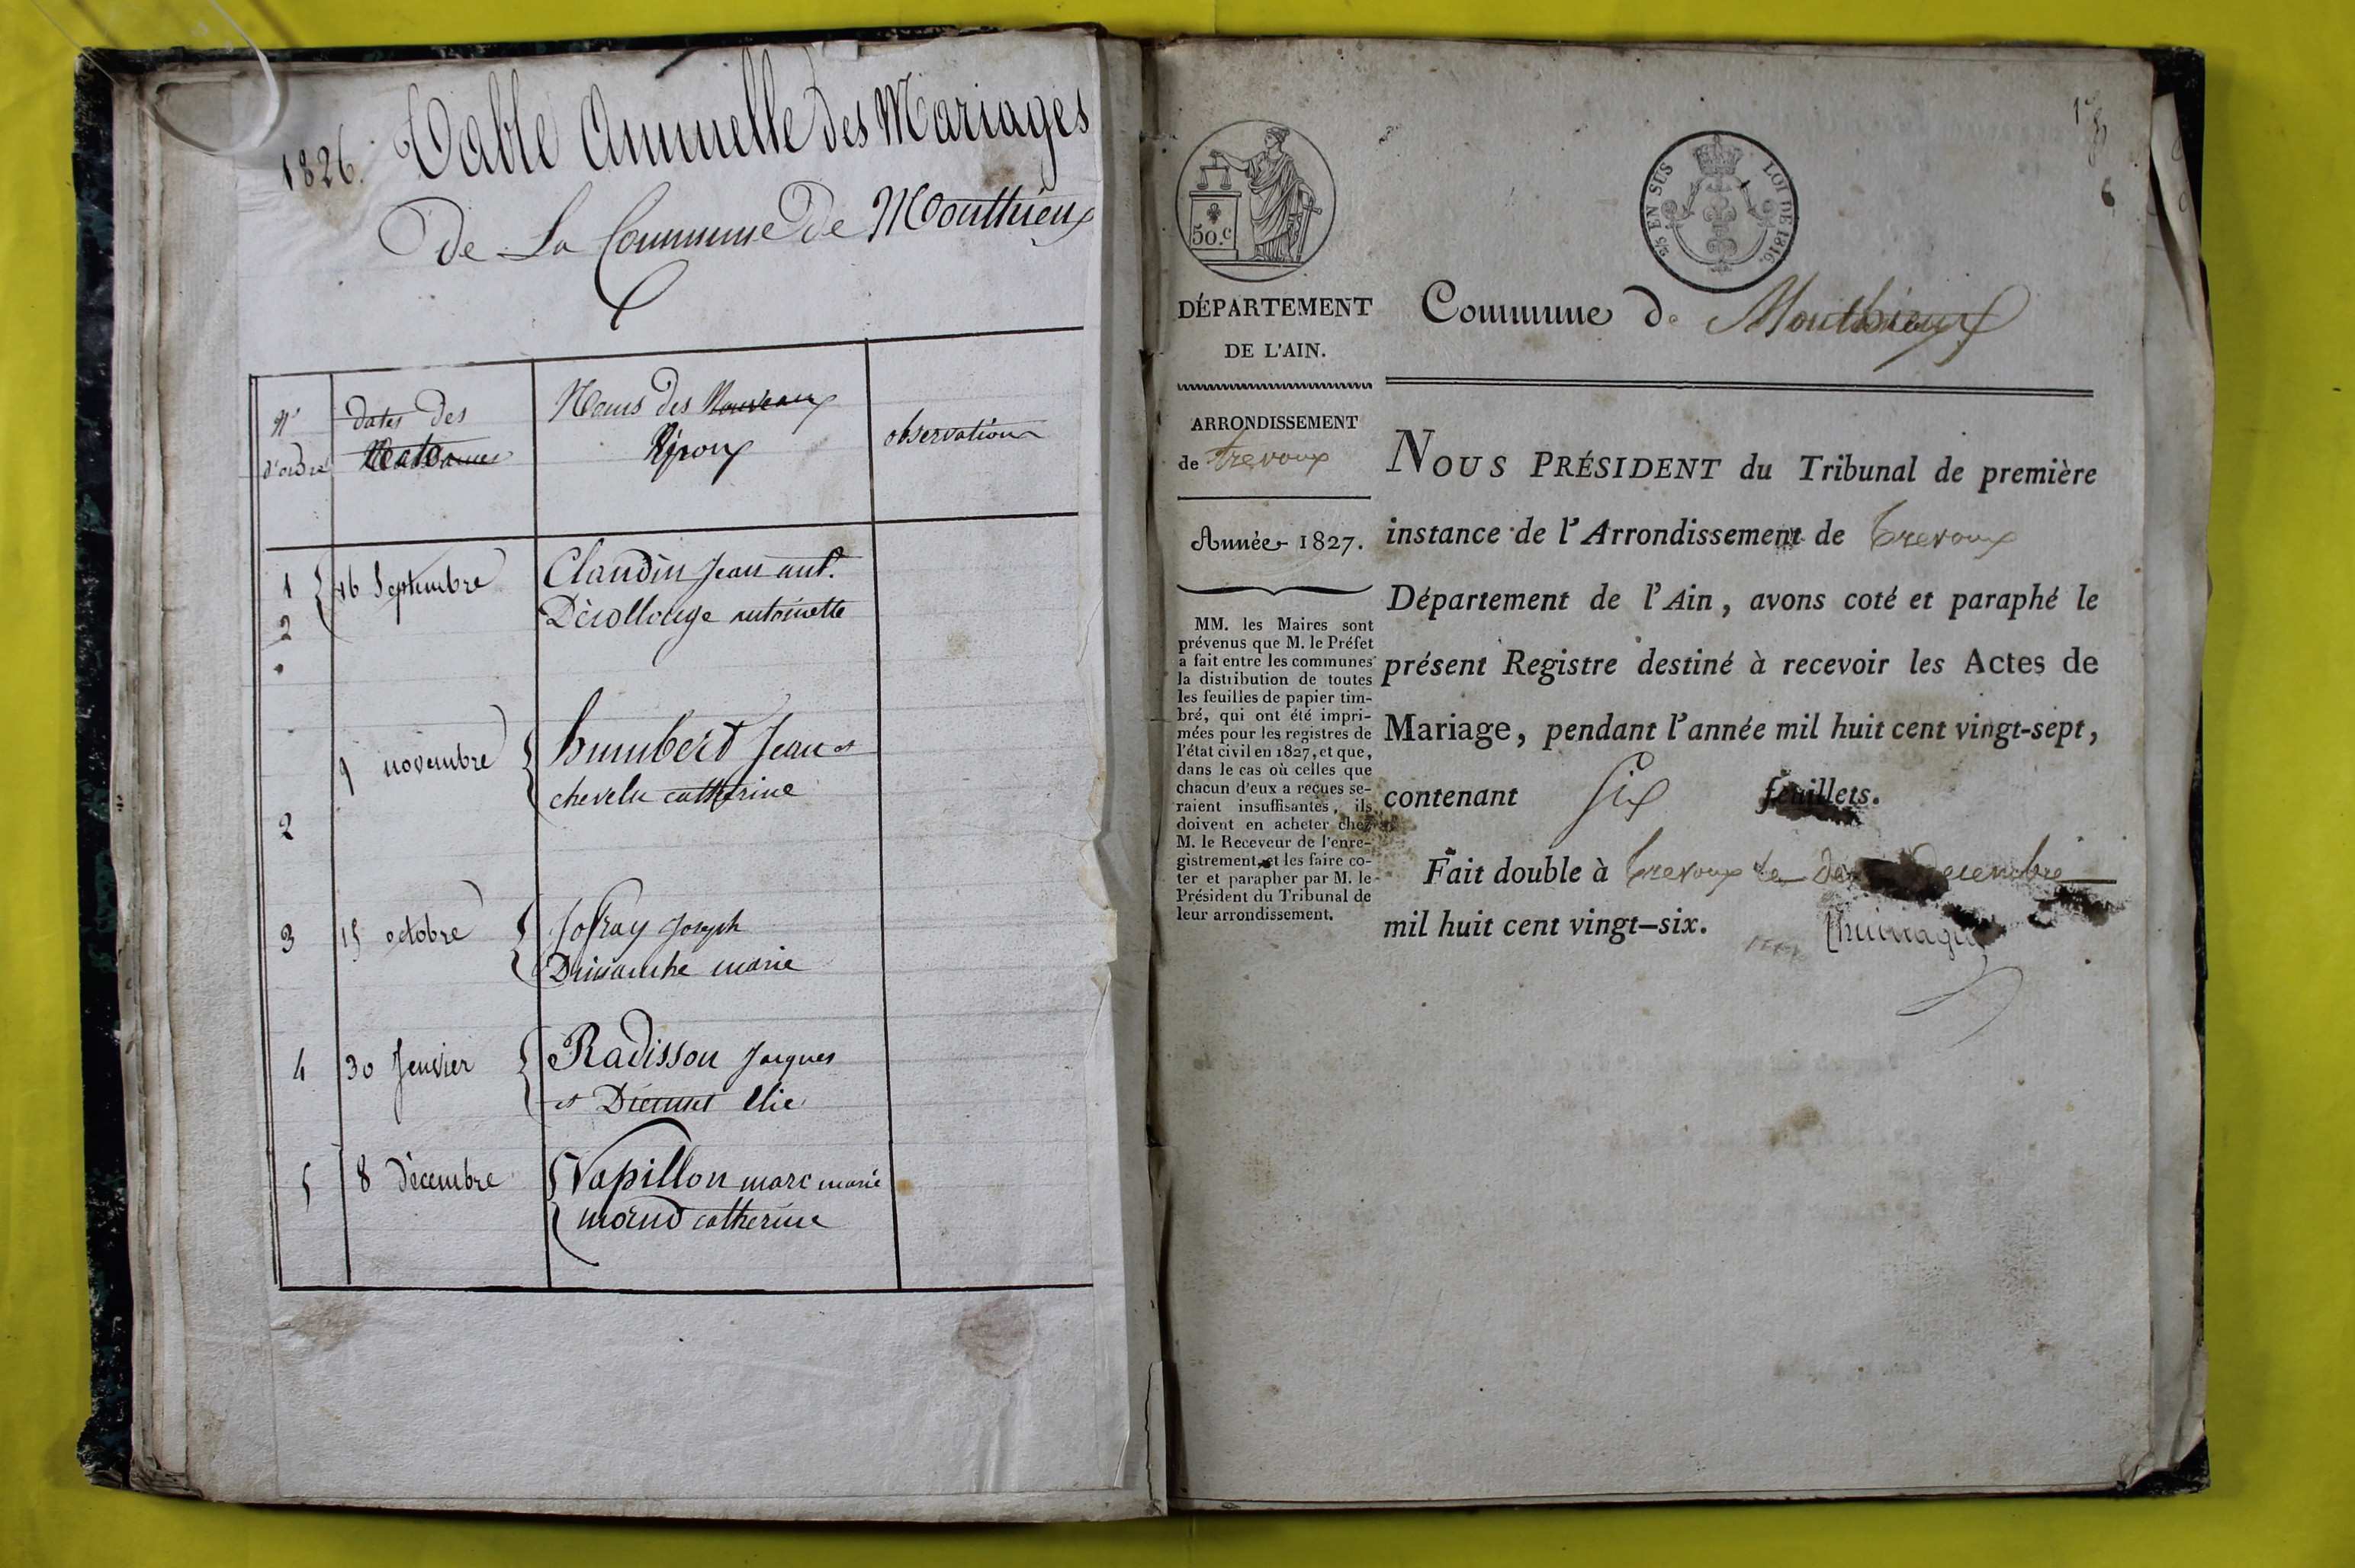 1826. Table Annuelle des Mariages
De La Commune De Monthieux
N°
d'ordre
dates des
Noms des Nouveaux
Epoux
observation
1
2
16 Septembre
Claudin Jean ant.
Décollonge antoinette
2
9 novembre
humbert Jean et
chevelu catherine
3
15 octobre
Jofray Joseph
Dimanche marie
4
30 Jenvier
Radisson Jacques
et Élie
5
8 décembre
Vapillon marc marie
catherine
6
50.c
2/5 EN SUS
LOI DE 1816.
DÉPARTEMENT
DE L'AIN.
ARRONDISSEMENT
de trevoux
Année 1827.
MM. les Maires sont
prévenus que M. le Préfet
a fait entre les communes
la distribution de toutes
les feuilles de papier tim-
bré, qui ont été impri-
mées pour les registres de
l'état civil en 1827, et que,
dans le cas où celles que
chacun d'eux a reçues se-
raient insuffisantes, ils
doivent en acheter chez
M. le Receveur de l'enre-
gistrement, et les faire co-
ter et parapher par M. le
Président du Tribunal de
leur arrondissement.
Commune de Monthieux
NOUS PRÉSIDENT du Tribunal de première
instance de l'Arrondissement de trevoux
Département de l'Ain, avons coté et paraphé le
présent Registre destiné à recevoir les Actes de
Mariage, pendant l'année mil huit cent vingt-sept,
contenant Six feuillets.
Fait double à trevoux le decembre
mil huit cent vingt-six.